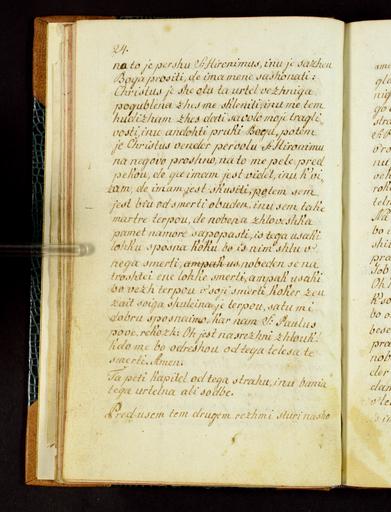 24.
na to je pershu S: Hironimus, inu je sazheu
Boga prositi, de ima mene sashonati:
Christus je she ota urtel vezhniga
pogublena zhes me skleniti, inu me tem
hudizham zhes dati savolo moje tragli
vosti, inu andohti pruti Bogu, potem
je Christus vender pervolu S: Hironimu
na negovo proshno, na to me pele pred
pekou, de ga imam jest videt, inu k'vi
zam, de iniam jest skusiti, potem sem
jest biu od smerti obuden, inu sem take
martre terpou, de nobena zhloveshka
pamet namore sapopasti, is tega usaki
lohku sposna koku bo is nim shlu v'
nega smerti, ampak us nobeden se na
troshtei ene lohke smerti, ampak usaki
bo vezh terpou v'soji smerti koker zeu
zait soiga shuleina je terpou, satu mi
dobru sposnaimo, kar nam S: Paulus
pove, rekozh: Oh jest nasrezhni zhlouk!
kdo me bo odreshou od tega telesa te
smerti. Amen.
Ta peti kapitel od tega strahu, inu bania
tega urtelna ali sodbe.
Pred usem tem drugem rezhmi sturi nasho